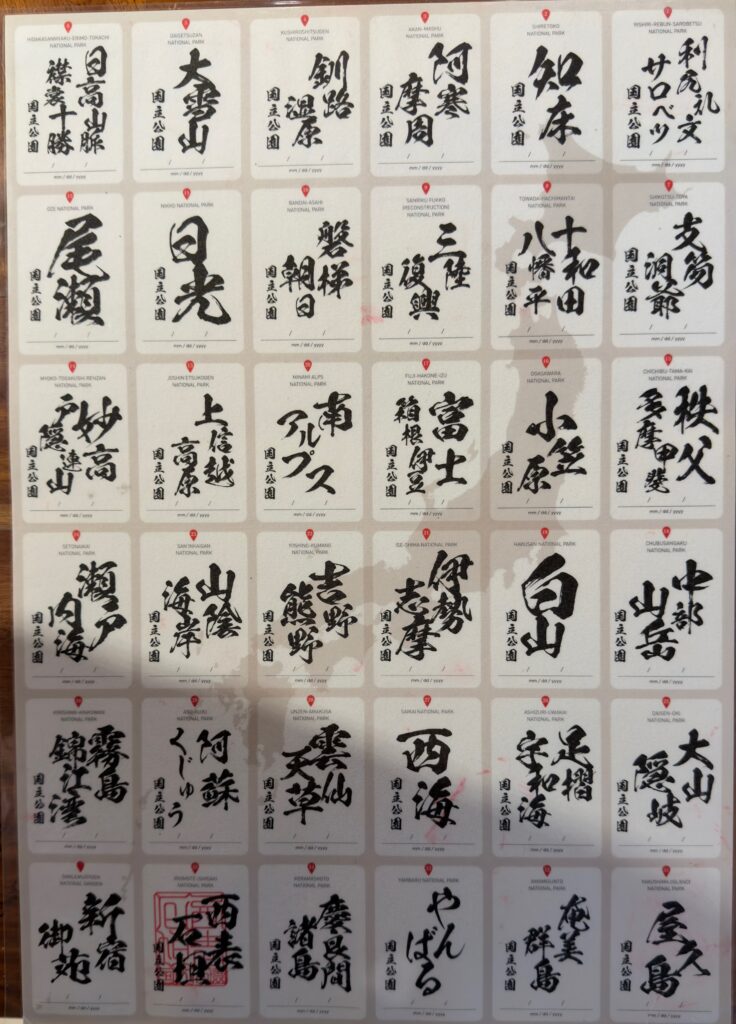 HIDAKASANMYAKU-ERIMO-TOKACHI
NATIONAL PARK
日高山脈
襟裳十勝
国立公園
/ /
mm / dd / yyyy
DAISETSUZAN
NATIONAL PARK
大雪山
国立公園
/ /
mm / dd / yyyy
KUSHIROSHITSUGEN
NATIONAL PARK
釧路
湿原
国立公園
/ /
mm / dd / yyyy
AKAN-MASHU
NATIONAL PARK
阿寒
摩周
国立公園
/ /
mm / dd / yyyy
SHIRETOKO
NATIONAL PARK
知床
国立公園
/ /
mm / dd / yyyy
RISHIRI-REBUN-SAROBETSU
NATIONAL PARK
利尻礼文
サロベツ
国立公園
/ /
mm / dd / yyyy
OZE NATIONAL PARK
尾瀬
国立公園
/ /
mm / dd / yyyy
NIKKO NATIONAL PARK
日光
国立公園
/ /
mm / dd / yyyy
BANDAI-ASAHI
NATIONAL PARK
磐梯
朝日
国立公園
/ /
mm / dd / yyyy
SANRIKU FUKKO
(RECONSTRUCTION)
NATIONAL PARK
三陸
復興
国立公園
/ /
mm / dd / yyyy
TOWADA-HACHIMANTAI
NATIONAL PARK
十和田
八幡平
国立公園
/ /
mm / dd / yyyy
SHIKOTSU-TOYA
NATIONAL PARK
支笏
洞爺
国立公園
/ /
mm / dd / yyyy
MYOKO-TOGAKUSHI RENZAN
NATIONAL PARK
妙高
戸隠連山
国立公園
/ /
mm / dd / yyyy
JOSHIN'ETSUKOGEN
NATIONAL PARK
上信越
高原
国立公園
/ /
mm / dd / yyyy
MINAMI ALPS
NATIONAL PARK
南
アルプス
国立公園
/ /
mm / dd / yyyy
FUJI-HAKONE-IZU
NATIONAL PARK
富士
箱根伊豆
国立公園
/ /
mm / dd / yyyy
OGASAWARA
NATIONAL PARK
小笠原
国立公園
/ /
mm / dd / yyyy
CHICHIBU-TAMA-KAI
NATIONAL PARK
秩父
多摩甲斐
国立公園
/ /
mm / dd / yyyy
SETONAIKAI
NATIONAL PARK
瀬戸
内海
国立公園
/ /
mm / dd / yyyy
SAN'INKAIGAN
NATIONAL PARK
山陰
海岸
国立公園
/ /
mm / dd / yyyy
YOSHINO-KUMANO
NATIONAL PARK
吉野
熊野
国立公園
/ /
mm / dd / yyyy
ISE-SHIMA NATIONAL PARK
伊勢
志摩
国立公園
/ /
mm / dd / yyyy
HAKUSAN NATIONAL PARK
白山
国立公園
/ /
mm / dd / yyyy
CHUBUSANGAKU
NATIONAL PARK
中部
山岳
国立公園
/ /
mm / dd / yyyy
KIRISHIMA-KINKOWAN
NATIONAL PARK
霧島
錦江湾
国立公園
/ /
mm / dd / yyyy
ASO-KUJU
NATIONAL PARK
阿蘇
くじゅう
国立公園
/ /
mm / dd / yyyy
UNZEN-AMAKUSA
NATIONAL PARK
雲仙
天草
国立公園
/ /
mm / dd / yyyy
SAIKAI NATIONAL PARK
西海
国立公園
/ /
mm / dd / yyyy
ASHIZURI-UWAKAI
NATIONAL PARK
足摺
宇和海
国立公園
/ /
mm / dd / yyyy
DAISEN-OKI
NATIONAL PARK
大山
隠岐
国立公園
/ /
mm / dd / yyyy
SHINJUKUGYOEN
NATIONAL GARDEN
新宿
御苑
/ /
mm / dd / yyyy
IRIOMOTE-ISHIGAKI
NATIONAL PARK
西表
石垣
国立公園
/ /
mm / dd / yyyy
KERAMASHOTO
NATIONAL PARK
慶良間
諸島
国立公園
/ /
mm / dd / yyyy
YAMBARU NATIONAL PARK
やんばる
国立公園
/ /
mm / dd / yyyy
AMAMIGUNTO
NATIONAL PARK
奄美
群島
国立公園
/ /
mm / dd / yyyy
YAKUSHIMA (ISLAND)
NATIONAL PARK
屋久島
国立公園
/ /
mm / dd / yyyy